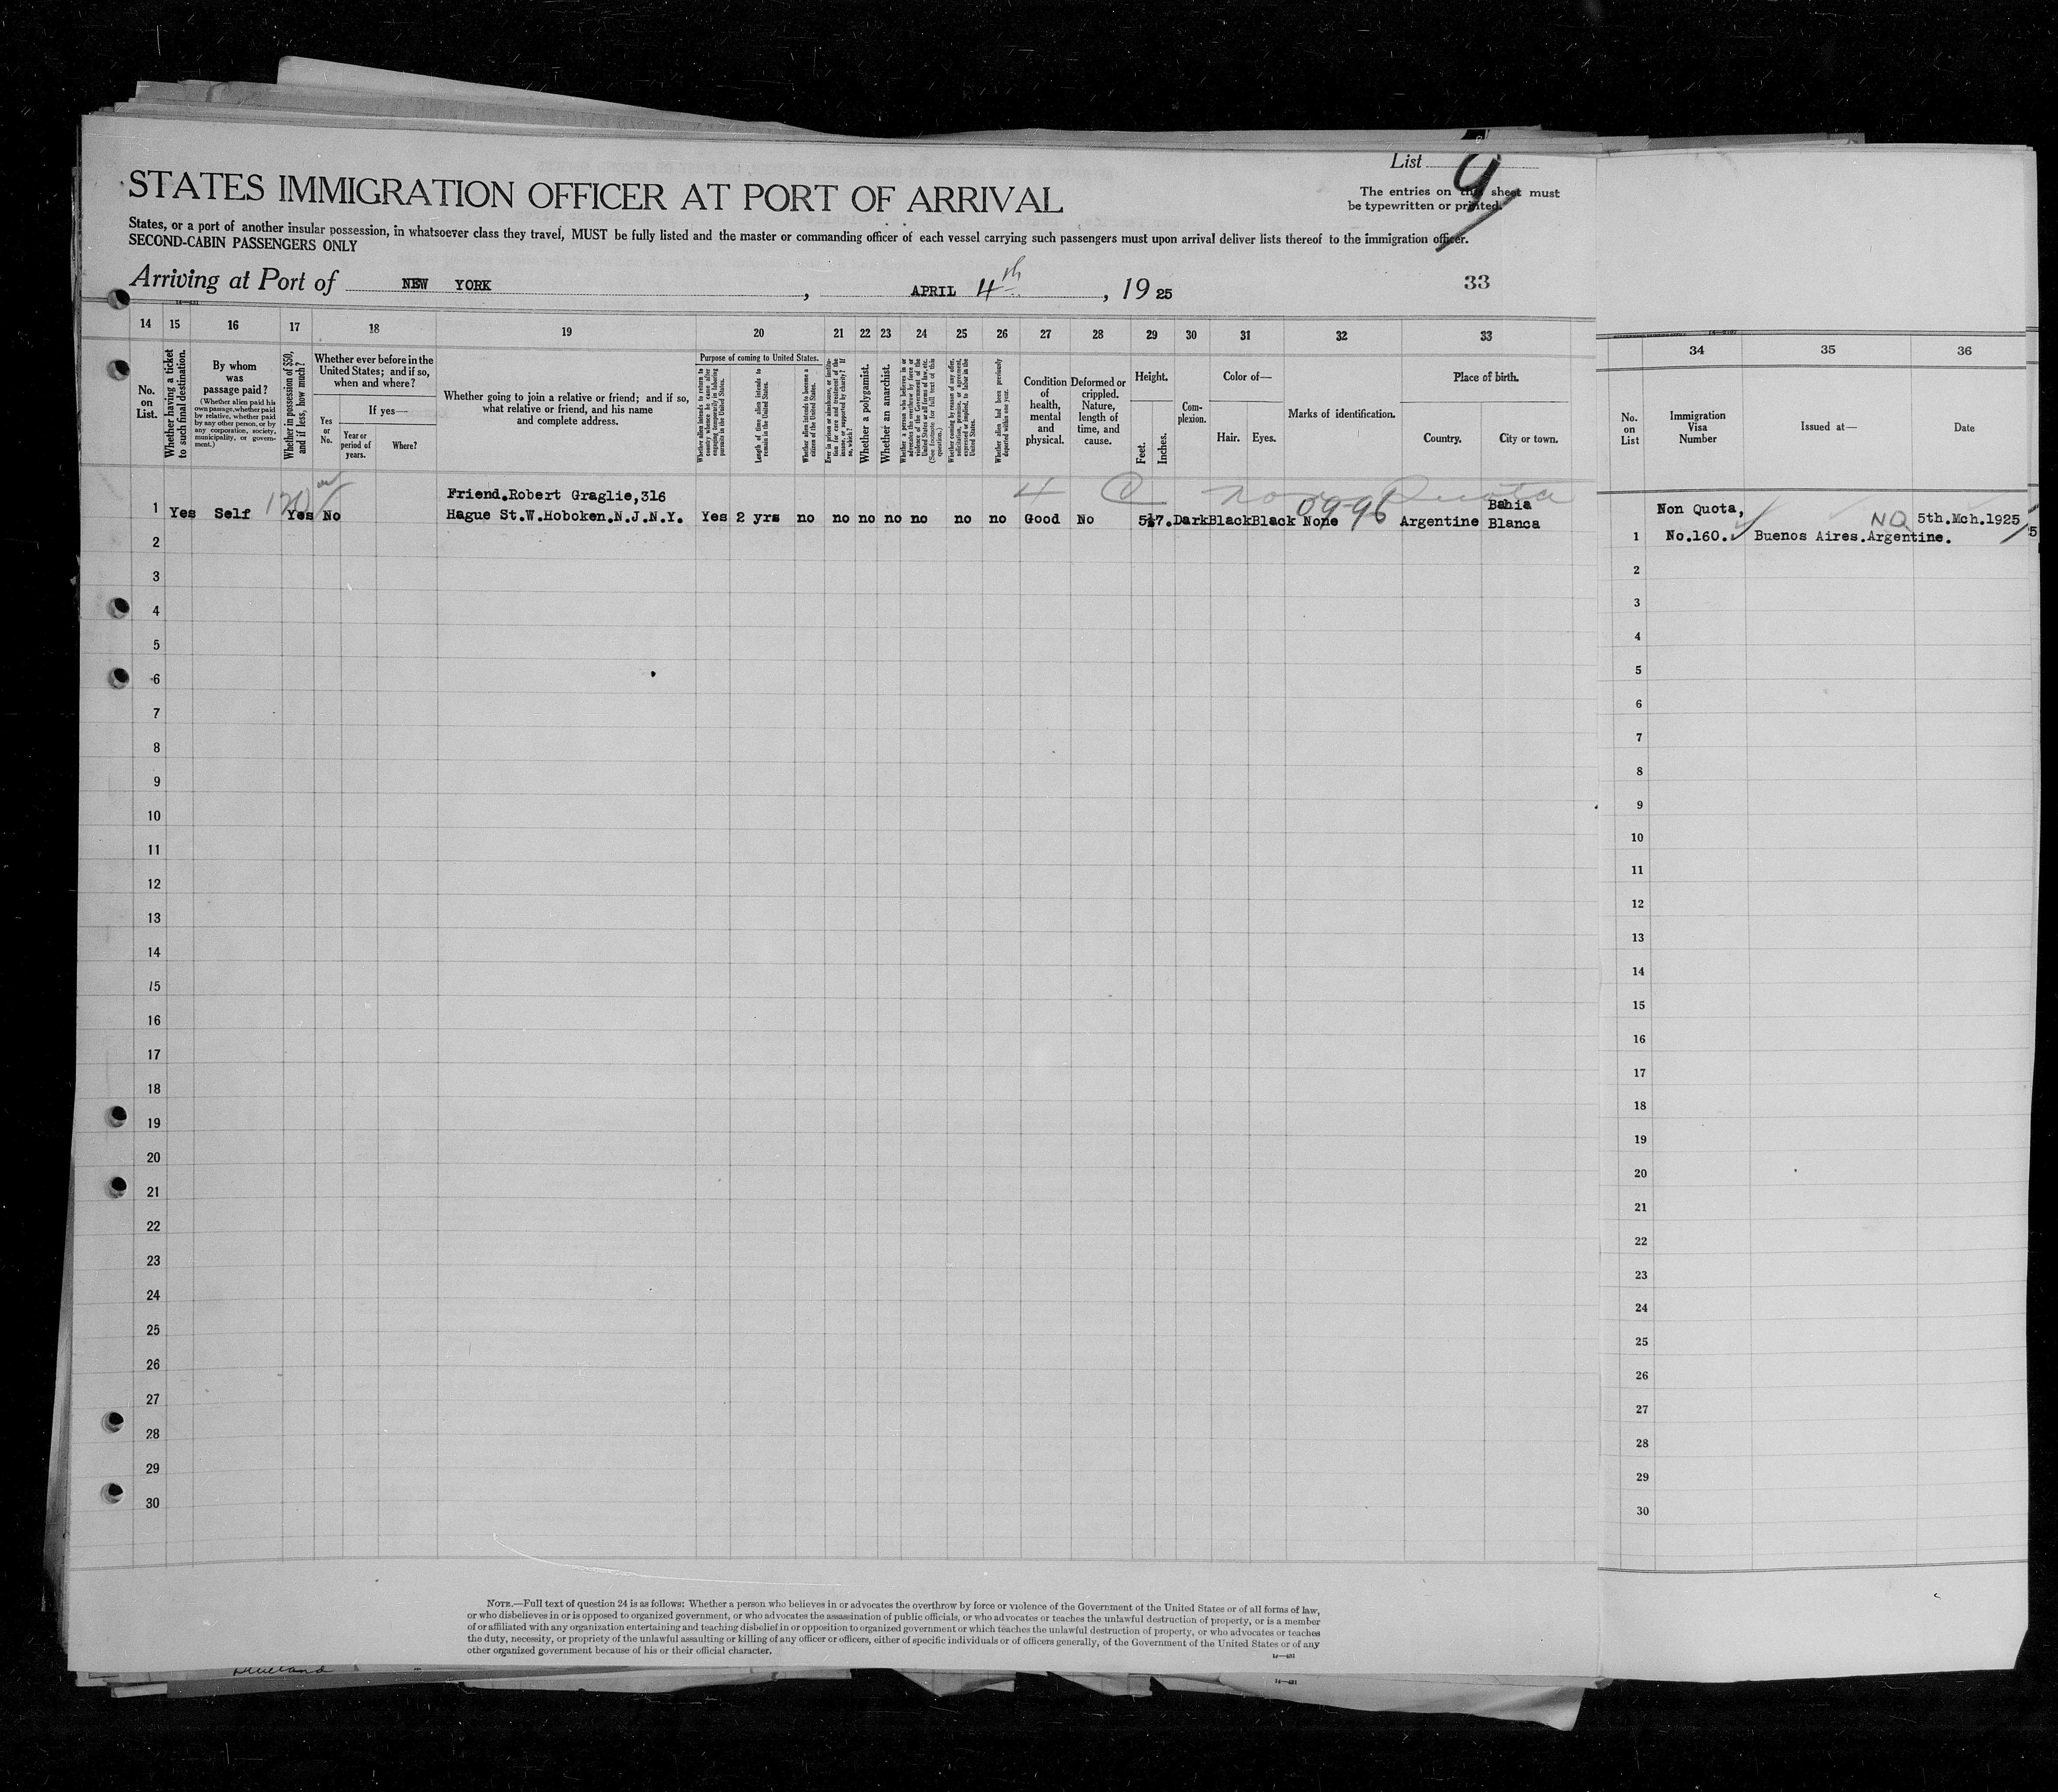 List 9
The entries on this sheet must
be typewritten or printed.
STATES IMMIGRATION OFFICER AT PORT OF ARRIVAL
States, or a port of another insular possession, in whatsoever class they travel, MUST be fully listed and the master or commanding officer of each vessel carrying such passengers must upon arrival deliver lists thereof to the immigration officer.
SECOND-CABIN PASSENGERS ONLY
Arriving at Port of NEW YORK, APRIL 4th, 1925
33
14 15 16 17 18 19 20 21 22 23 24 25 26 27 28 29 30 31 32 33 34 35 36
No. on List.
Whether having a ticket to such final destination.
By whom was passage paid?
(Whether alien paid his own passage, whether paid by relative, whether paid by any other person, or by any corporation, society, municipality, or government.)
Whether in possession of $50, and if less, how much?
Whether ever before in the United States; and if so, when and where?
Yes or No.
If yes—
Year or period of years.
Where?
Whether going to join a relative or friend; and if so, what relative or friend, and his name and complete address.
Purpose of coming to United States.
Whether alien intends to return to country whence he came after engaging temporarily in laboring pursuits in the United States.
Length of time alien intends to remain in the United States.
Whether alien intends to become a citizen of the United States.
Ever in prison or almshouse, or institution for care and treatment of the insane, or supported by charity? If so, which?
Whether a polygamist.
Whether an anarchist.
Whether a person who believes in or advocates the overthrow by force or violence of the Government of the United States or all forms of law, etc. (See footnote for full text of this question.)
Whether coming by reason of any offer, solicitation, promise, or agreement, expressed or implied, to labor in the United States.
Whether alien had been previously deported within one year.
Condition of health, mental and physical.
Deformed or crippled. Nature, length of time, and cause.
Height.
Feet. Inches.
Complexion.
Color of—
Hair. Eyes.
Marks of identification.
Place of birth.
Country. City or town.
No. on List
Immigration Visa Number
Issued at—
Date
4 Non Quota
170
09-96
1 Yes Self Yes No Friend.Robert Graglie,316
Hague St.W.Hoboken.N.J.N.Y. Yes 2 yrs no no no no no no no Good No 5 7. Dark Black Black None Argentine Bahia
Blanca
1 Non Quota,
No.160. Buenos Aires.Argentine. NQ 5th.Mch.1925
2
3
4
5
6
7
8
9
10
11
12
13
14
15
16
17
18
19
20
21
22
23
24
25
26
27
28
29
30
2
3
4
5
6
7
8
9
10
11
12
13
14
15
16
17
18
19
20
21
22
23
24
25
26
27
28
29
30
NOTE.—Full text of question 24 is as follows: Whether a person who believes in or advocates the overthrow by force or violence of the Government of the United States or of all forms of law,
or who disbelieves in or is opposed to organized government, or who advocates the assassination of public officials, or who advocates or teaches the unlawful destruction of property, or is a member
of or affiliated with any organization entertaining and teaching disbelief in or opposition to organized government or which teaches the unlawful destruction of property, or who advocates or teaches
the duty, necessity, or propriety of the unlawful assaulting or killing of any officer or officers, either of specific individuals or of officers generally, of the Government of the United States or of any
other organized government because of his or their official character.
14—431